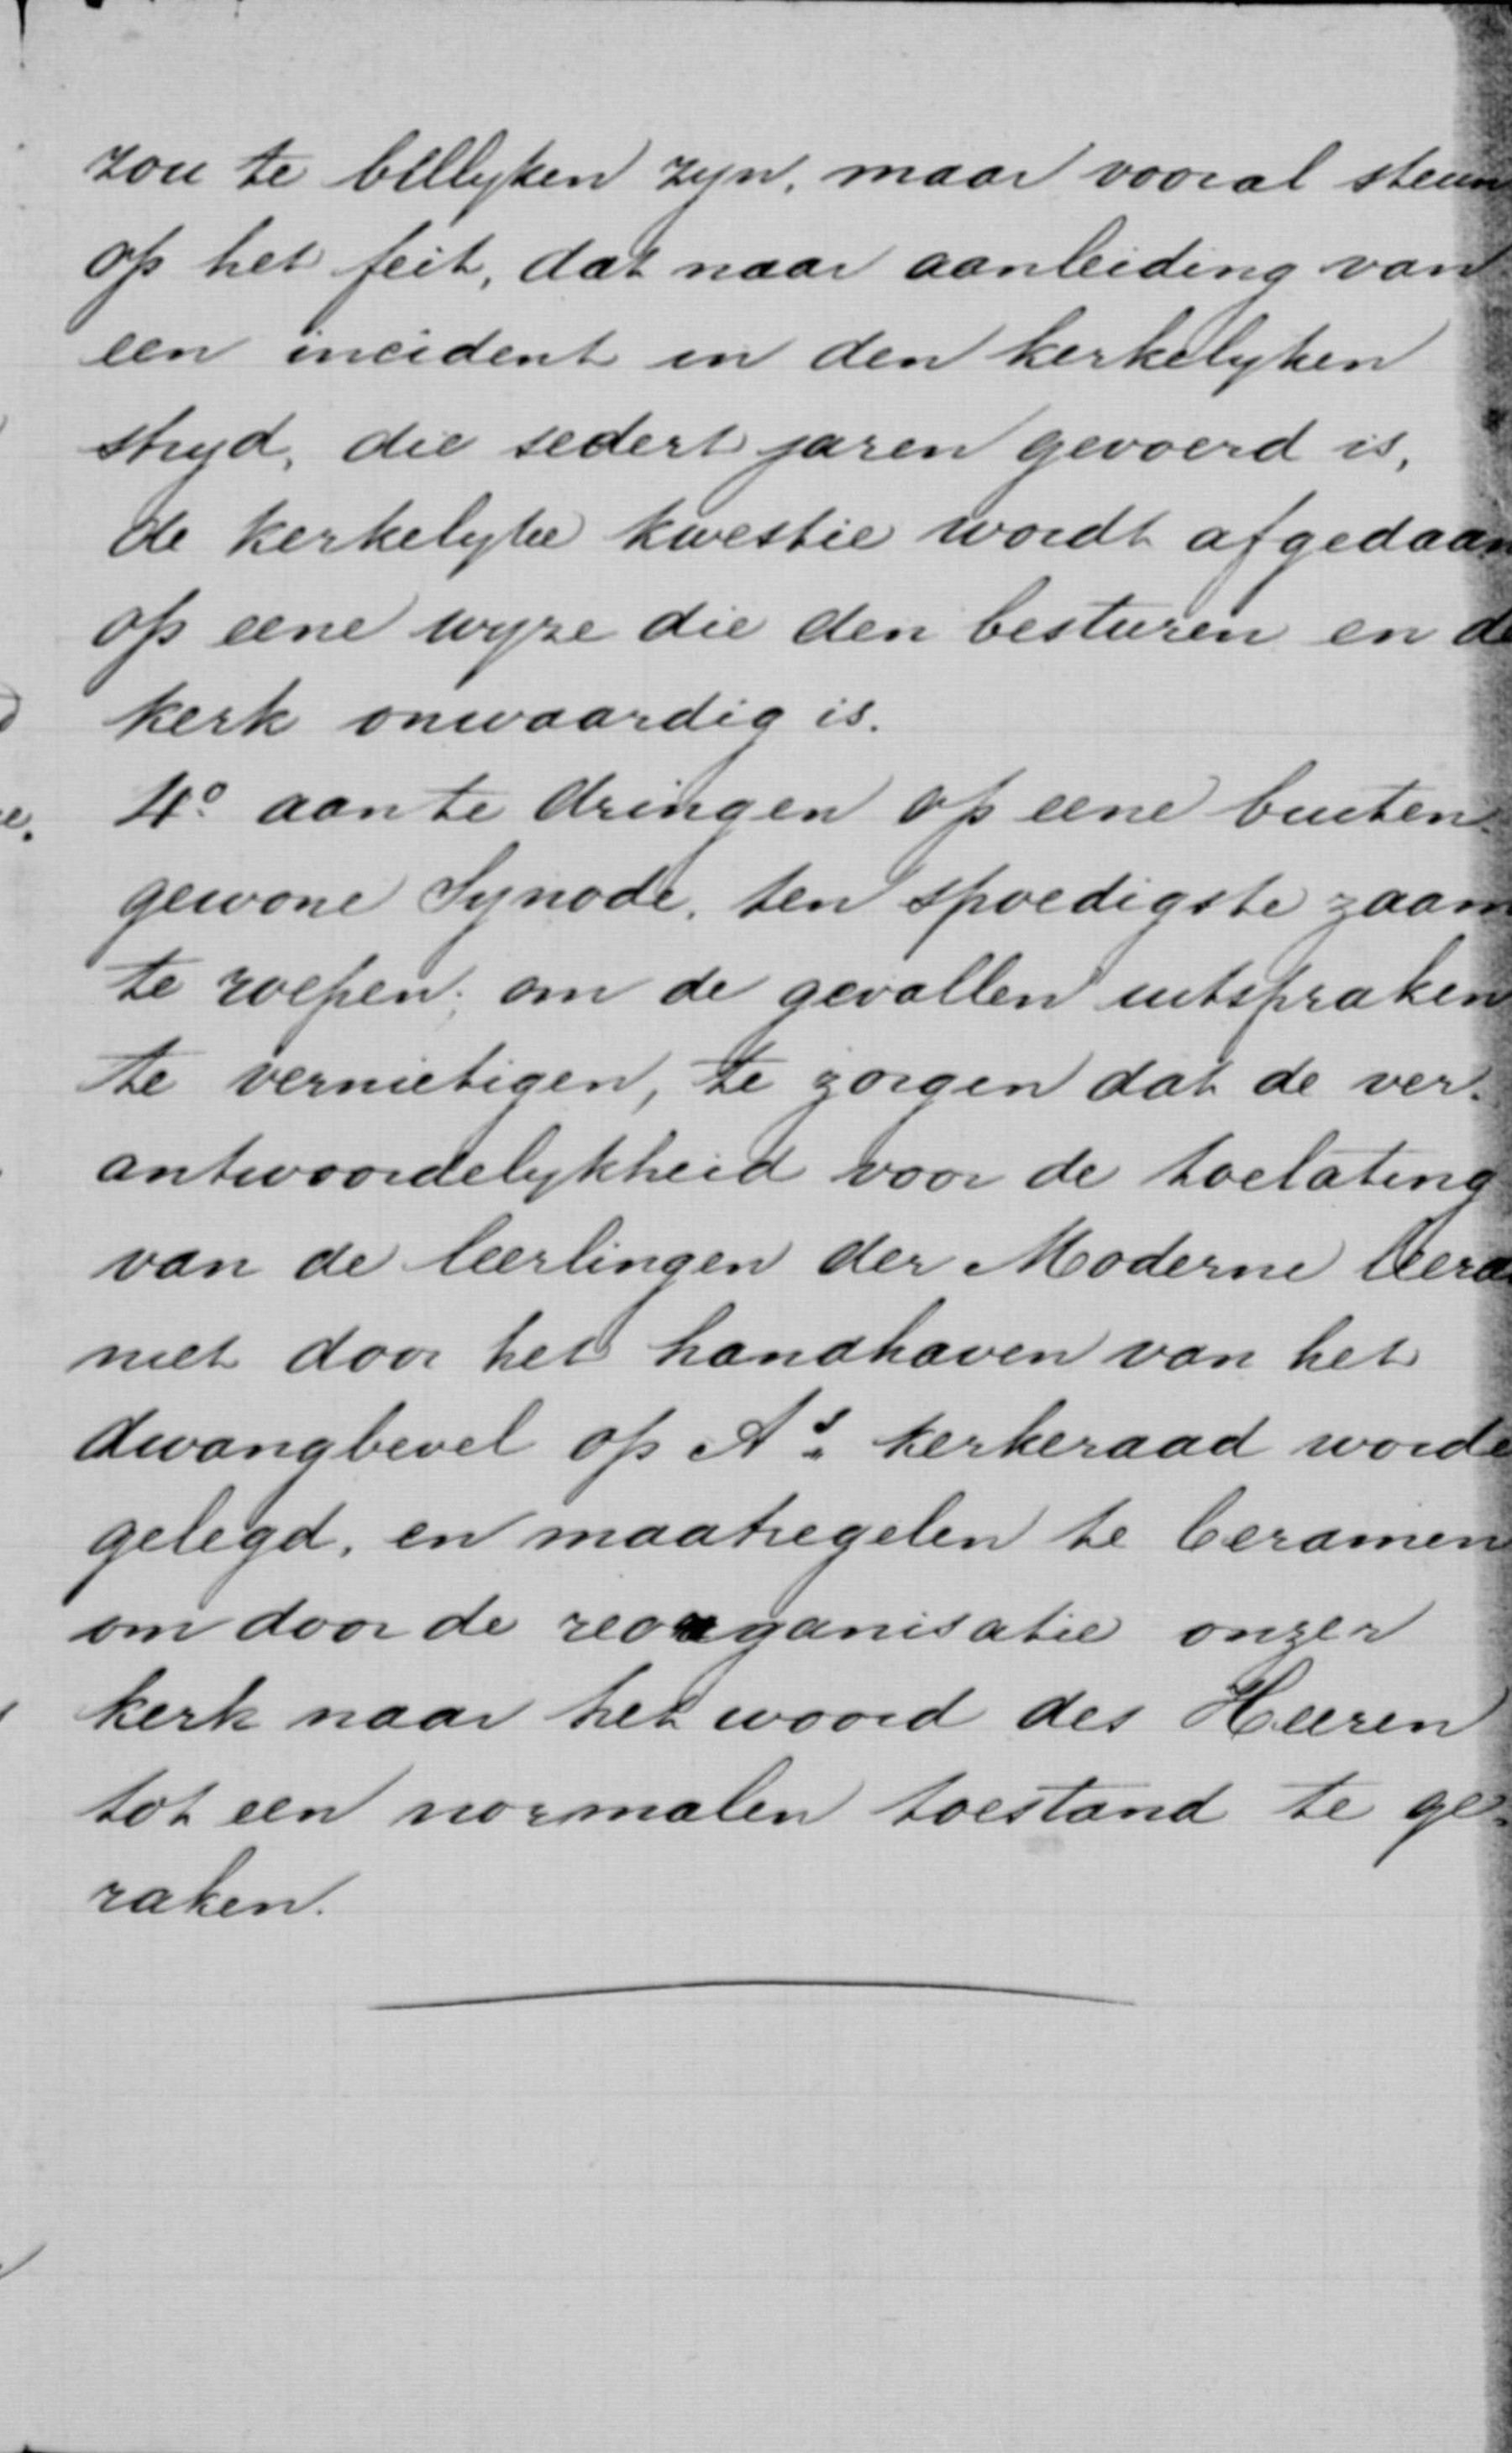 zou te billyken zyn, maar vooral steun
op het feit, dat naar aanleiding van
een incident in den kerkelyken
stryd, die sedert jaren gevoerd is,
de kerkelyke kwestie wordt afgedaan
op eene wyze die den besturen en de
kerk onwaardig is.
4° aan te dringen op eene buiten-
gewone Synode, ten spoedigste zaam
te roepen; om de gevallen uitspraken
te vernietigen, te zorgen dat de ver-
antwoordelykheid voor de toelating
van de leerlingen der Moderne leera
niet door het handhaven van het
dwangbevel op A's kerkeraad worde
gelegd, en maatregelen te beramen
om door de reorganisatie onzer
kerk naar het woord des Heeren
tot een normalen toestand te ge-
raken.